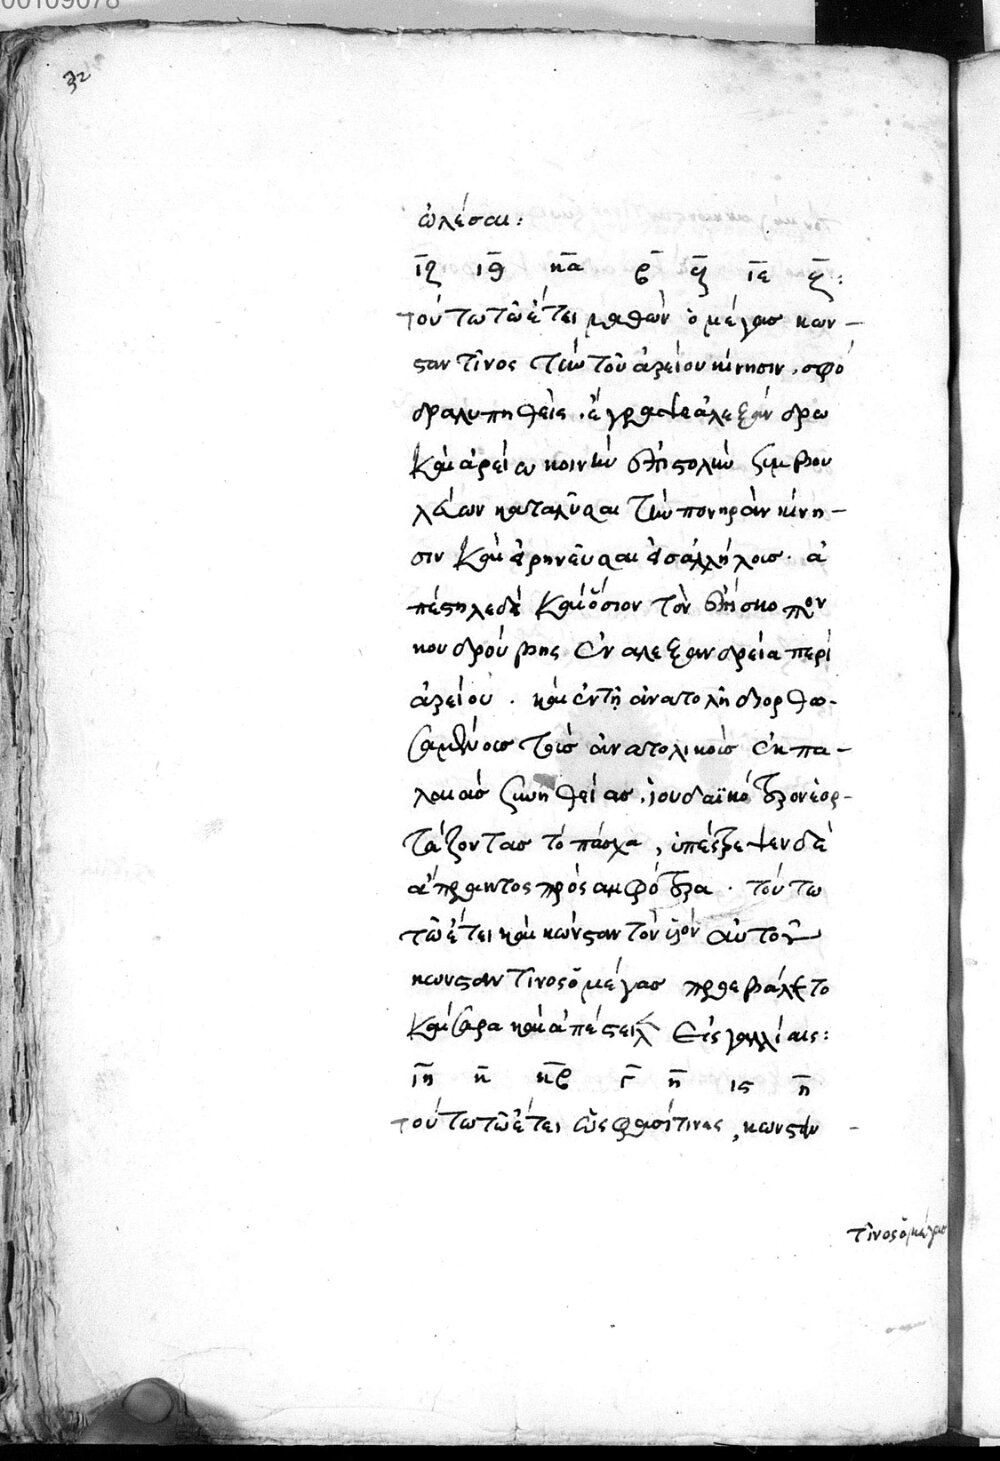 00109078
32
ὠλέσαι:
ιζ ιθ κα ρ ζ ιε ζ:
τούτω τῶ ἔτει μαθὼν ὁ μέγας κων-
σταντῖνος τὴν τοῦ ἀρείου κίνησιν, σφό
δρα λυπηθεὶς, ἔγραψε ἀλεξάνδρω
καὶ ἀρείω κοινὴν ἐπιστολὴν συμβου
λεύων καταλῦσαι τὴν πονηρὰν κίνη-
σιν καὶ εἰρηνεῦσαι ἐς ἀλλήλοις. ἀ
πέστηλε δὲ καὶ ὅσιον τὸν ἐπίσκοπον
κουδρούβης ἐν αλεξανδρεία περὶ
ἀρείου. καὶ ἐν τῆ ἀνατολῆ διορθω-
σαμένοις τοῖς ἀνατολικοῖς ἐκ πα-
λαιᾶς συνηθείας, ἰουδαϊκώτερον ἑορ-
τάζοντας τὸ πάσχα, ὑπέστρεψεν δὲ
ἄπρακτος πρὸς ἀμφότερα. τούτω
τῶ ἔτει καὶ κώνσταν τὸν υἱὸν αὐτοῦ
κωνσταντῖνος ὁ μέγας προεβάλετο
καίσαρα καὶ ἀπέστειλ εἰς γαλλίαις:
ιη κ κβ γ η ις η
τούτω τῶ ἔτει ὥς φασί τινες, κωνσταν -
τῖνος ὁ μέγας